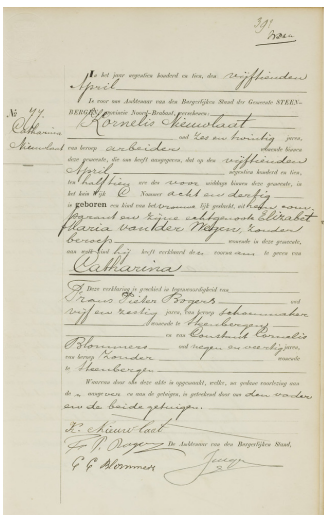 391
In het jaar negentien honderd en tien, den vijftienden
April
is voor ons Ambtenaar van den Burgerlijken Stand der Gemeente STEEN-
BERGEN, provincie Noord-Brabant, verschenen:
No. 77.
Catharina
Nieuwlaat
Kornelis Nieuwlaat
oud zes en twintig jaren,
van beroep arbeider wonende binnen
deze gemeente, die ons heeft aangegeven, dat op den vijftienden
April negentien honderd en tien,
ten half tien ure des voor middags binnen deze gemeente, in
het huis Wijk C Nommer acht en dertig
is geboren een kind van het vrouwelijk geslacht, uit hem com-
parant en zijne echtgenoote Elizabet
Maria van der Wegen, zonder
beroep wonende in deze gemeente,
aan welk kind hij heeft verklaard den voornaam te geven van
Catharina
Deze verklaring is geschied in tegenwoordigheid van
Frans Pieter Bogers oud
vijf en zestig jaren, van beroep schoenmaker
wonende te Steenbergen
en van Constant Cornelis
Blommers oud negen en veertig jaren,
van beroep zonder wonende
te Steenbergen
Waarvan door ons deze akte is opgemaakt, welke, na gedane voorlezing aan
de aangever en aan de getuigen, is geteekend door ons den vader
en de beide getuigen.
K. Nieuwlaat
F. P. Bogers De Ambtenaar van den Burgerlijken Stand,
C C Blommers